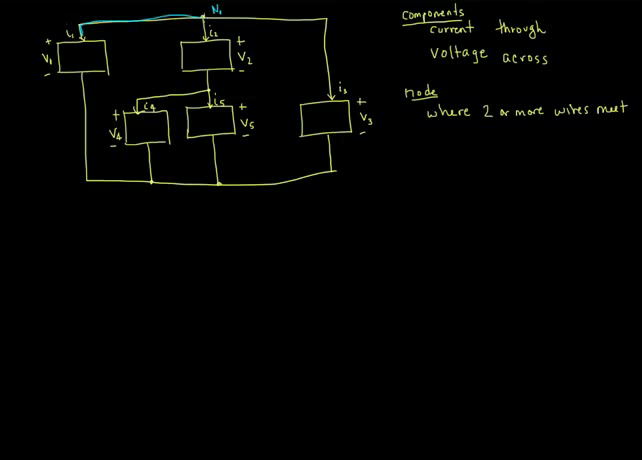 N1
i1
i2
+
V1
-
+
V2
-
i3
i4
i5
+
V4
-
+
V5
-
+
V3
-
Components
current through
Voltage across
node
where 2 or more wires meet